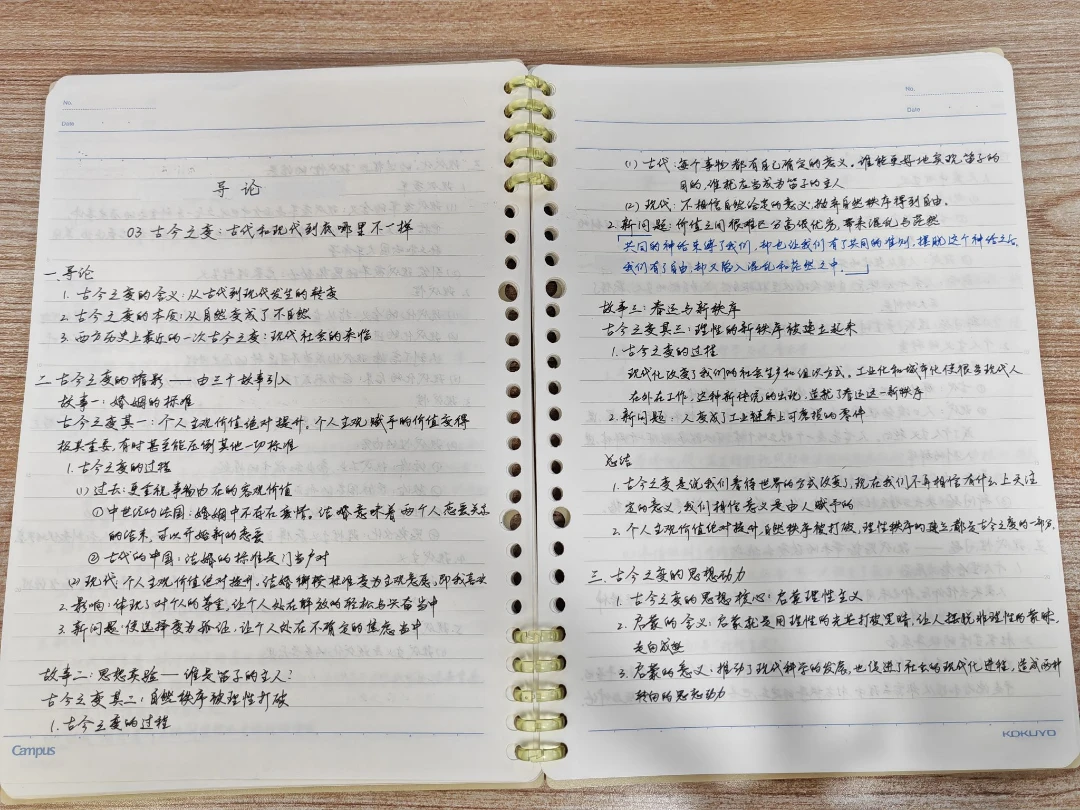 No.
Date
导论
03 古今之变：古代和现代到底哪里不一样
一. 导论
1. 古今之变的含义：从古代到现代发生的转变
2. 古今之变的本质：从自然变成了不自然
3. 西方历史上最近的一次古今之变：现代社会的来临
二. 古今之变的缩影 —— 由三个故事引入
故事一：婚姻的标准
古今之变其一：个人主观价值绝对提升，个人主观赋予的价值变得
极其重要，有时甚至能压倒其他一切标准
1. 古今之变的过程
(1) 过去：更重视事物内在的客观价值
① 中世纪的法国：婚姻中不存在爱情。结婚意味着两个人恋爱关系
的结束，可以开始新的恋爱
② 古代的中国：结婚的标准是门当户对
(2) 现代：个人主观价值绝对提升，结婚衡横标准变为主观意愿，即我喜欢
2. 影响：体现了对个人的尊重，让个人处在解放的轻松与兴奋当中
3. 新问题：使选择变为孤证，让个人处在不确定的焦虑当中
故事二：思想实验 —— 谁是笛子的主人？
古今之变其二：自然秩序被理性打破
1. 古今之变的过程
Campus
No.
Date
(1) 古代：每个事物都有自己确定的意义。谁能更好地实现笛子的
目的，谁就应当成为笛子的主人
(2) 现代：不相信自然给定的意义，抛弃自然秩序得到自由。
2. 新问题：价值之间很难区分高低优劣，带来混乱与茫然
共同的神话束缚了我们，却也让我们有了共同的准则，摆脱这个神话之后，
我们有了自由，却又陷入混乱和茫然之中。
故事三：春运与新秩序
古今之变其三：理性的新秩序被建立起来
1. 古今之变的过程
现代化改变了我们的和平生产和组织方式。工业化和城市化使很多现代人
在外在工作，这种新情况的出现，造就了春运这一新秩序
2. 新问题：人变成了工业链条上可磨损的零件
总结
1. 古今之变是说我们看待世界的方式改变，现在我们不再相信有什么上天注
定的意义，我们相信意义是由人赋予的
2. 个人主观价值绝对提升，自然秩序被打破，理性秩序的建立都是古今之变的一部分。
三. 古今之变的思想动力
1. 古今之变的思想核心：启蒙理性主义
2. 启蒙的含义：启蒙就是用理性的光芒打破黑暗，让人摆脱非理性的蒙昧，
走向成熟
3. 启蒙的意义：推动了现代科学的发展，也促进了社会的现代化进程，造成两种
转向的思想动力
KOKUYO